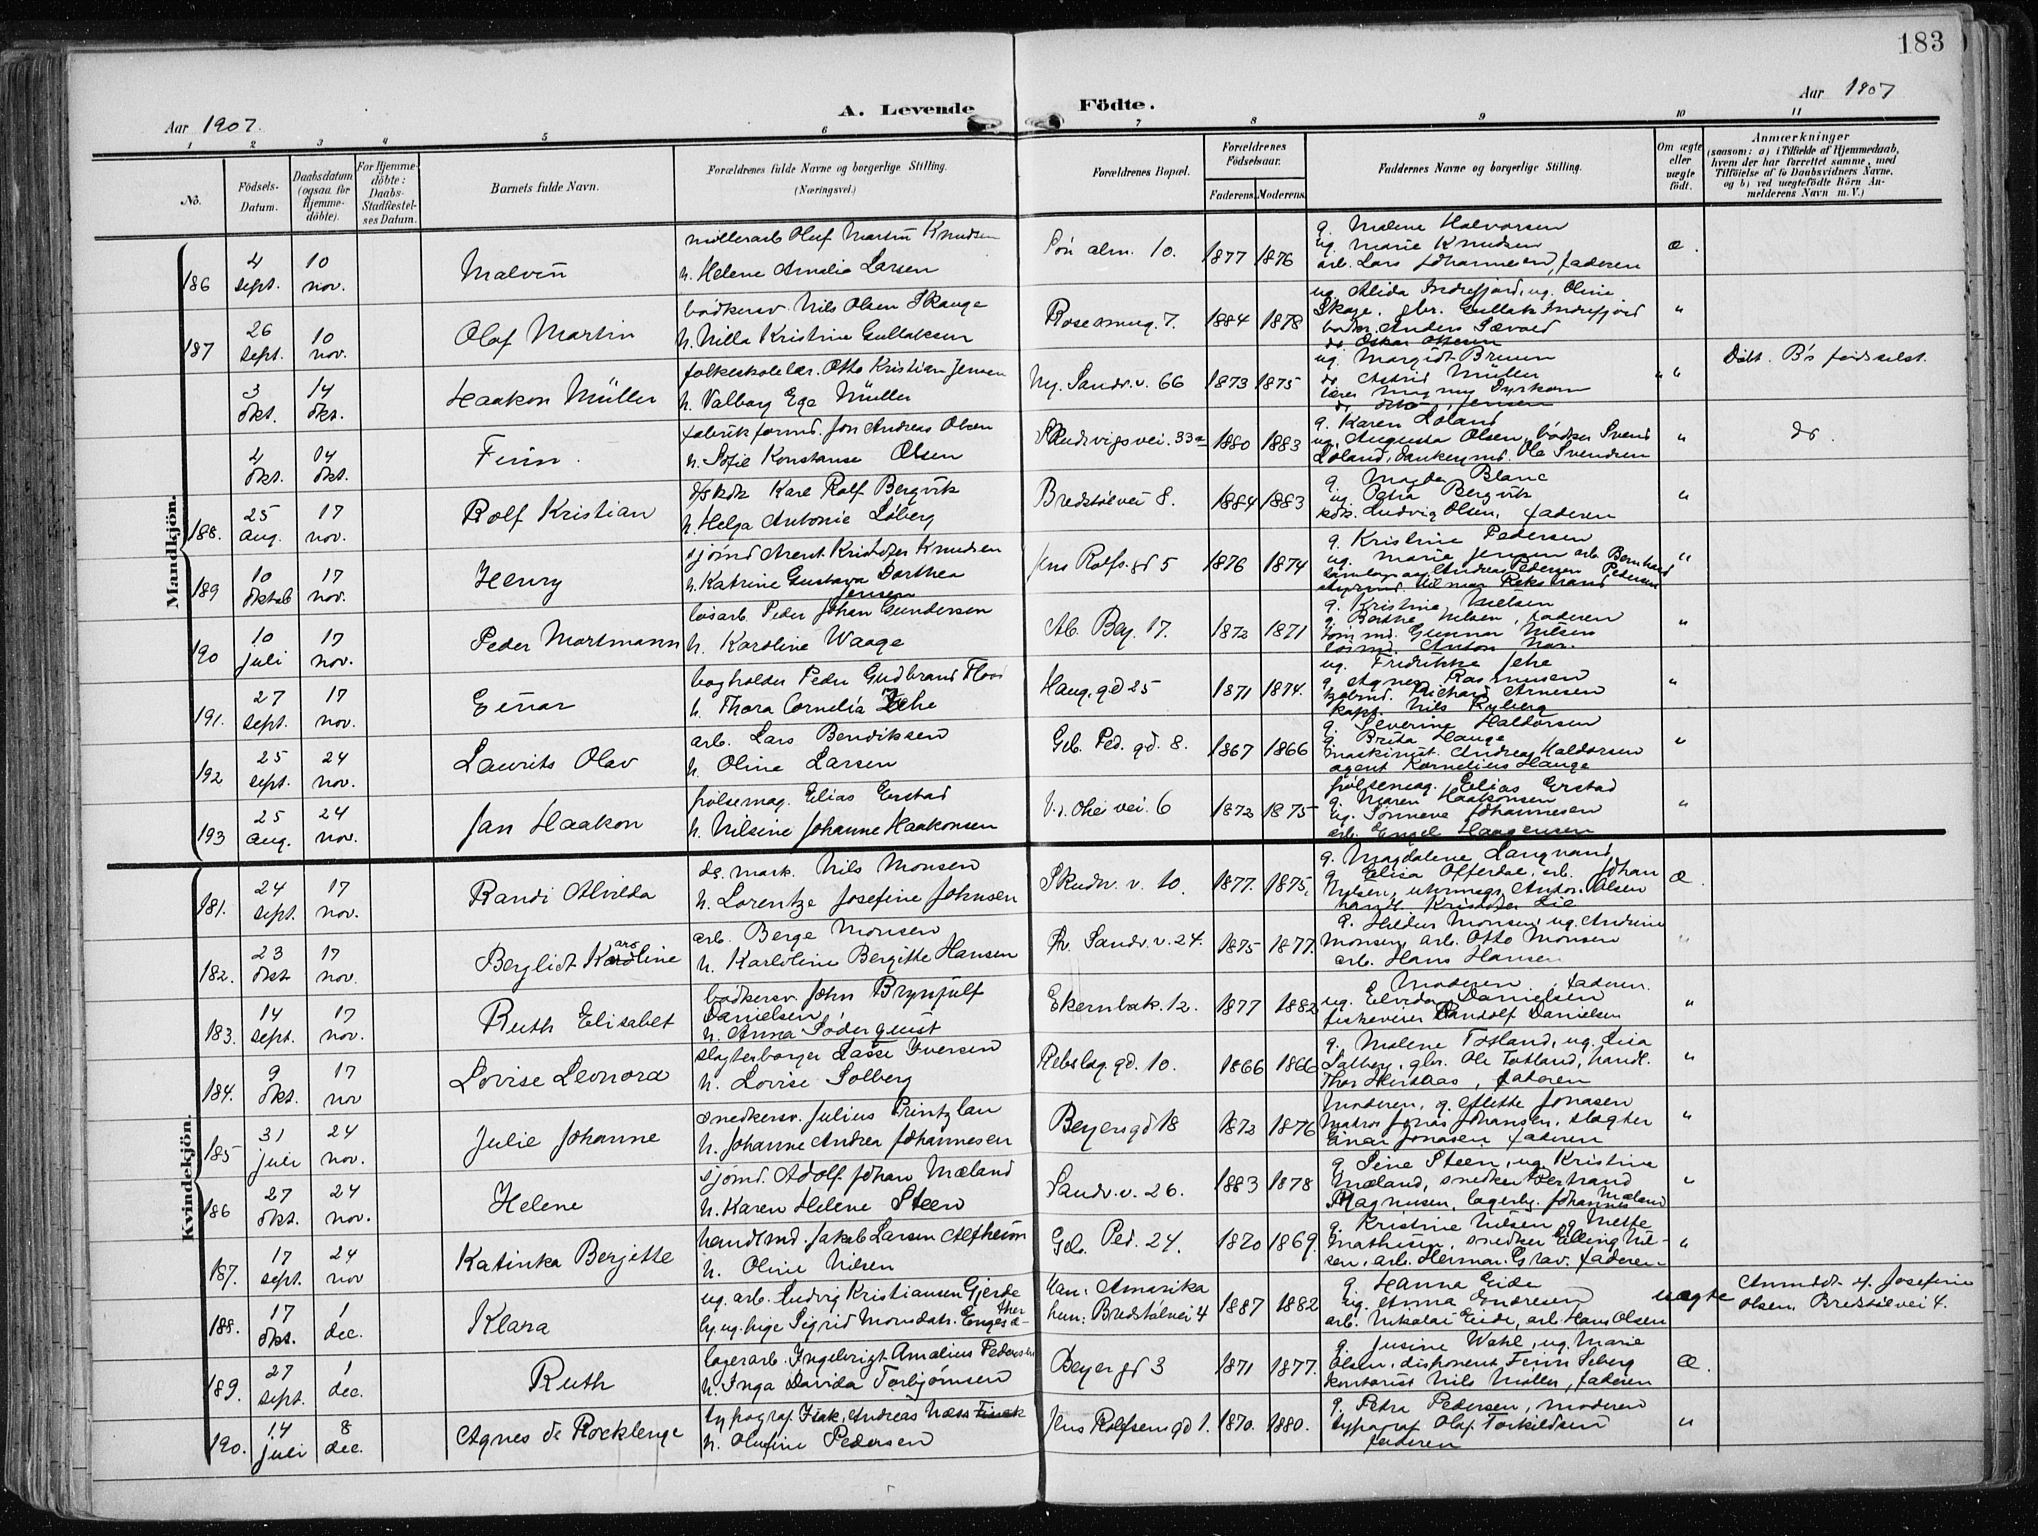 183
Aar 1907. A. Levende Födte. Aar 1907
1 2 3 4 5 6 7 8 9 10 11
No.
Födsels-Datum.
Daabsdatum (ogsaa for Hjemme-döbte).
For Hjemme-döbte: Daabs-Stadfestel-ses Datum.
Barnets fulde Navn.
Forældrenes fulde Navne og borgerlige Stilling. (Næringsvei.)
Forældrenes Bopæl.
Forældrenes Födselsaar.
Faderens. Moderens.
Faddernes Navne og borgerlige Stilling.
Om ægte eller uægte födt.
Anmærkninger
(saasom: a) i Tilfælde af Hjemmedaab, hvem der har forrettet samme, med Tilföielse af to Daabsvidners Navne, og b) ved uægtefödte Börn Anmelderens Navn m. V.)
Mandkjön.
186 4 sept. 10 nov. Malvin
møllerarb Oluf Martin Knudsen
h. Helene Amalia Larsen
alm. 10. 1877 1876
g. Malene Halvorsen
ug. Marie Knudsen
arb. Lars Johannesen, faderen
æ.
187 26 sept. 10 nov. Olaf Martin
bødkersv. Nils Olsen Skauge
h. Nilla Kristine Gullaksen
Rosesmug. 7. 1884 1878
ug. Alida Indrefjord, ug. Oline
Skage, gbr. Gullak Indrefjord
bødker Anders Sævold
do Oskar Ottesen
"
3 okt. 14 okt. Haakon Müller
folkeskolelær. Otto Kristian Jensen
h. Valborg Ege Müller
Ny. Sandv. v. 66 1873 1875
ug. Margidt Bruun
do Astrid Müller
lærer Magnus Dyrkorn
do Otto Jensen
" "
Døbt. B's fødselst.
4 okt. 14 okt. Finn.
fabrikformd. Jon Andreas Olsen
h. Sofie Konstanse Olsen
Skudevigsvei. 33a 1880 1883
g. Karen Loland
ug. Augusta Olsen, bødker Svend
Loland, Ole Svendsen
"
do.
188. 25 aug. 17 nov. Rolf Kristian
d/skdk Karl Rolf Bergvik
h. Helga Antonie Löberg
Bredstølvei 8. 1884 1883
g. Magda Blanc
ug. Petra Bergvik
kdk. Ludvig Olsen, faderen
"
189 10 oktob 17 nov. Henry
sjømd Arent Kristofer Knudsen
h. Katrine Gustava Dorthea
Jensen
Jens Rolfs. gd 5 1876 1874
g. Kristine Pedersen
ug. Marie Jensen arb Bernhard
Andreas Pedersen Pedersen
styrmd. Hilmar Rekstrand
"
190 10 juli 17 nov. Peder Mortmann
løsarb. Peder Johan Gundersen
h. Karoline Waage
Ab. Bey. 17. 1872 1871
g. Kristine Nielsen
g. Berthe Nilsen, faderen
Gunnar Nilsen
Anton
"
191. 27 sept. 17 nov. Einar
bogholder Peder Gudbrand
h. Thora Cornelia Jehe
Haug. gd 25 1871 1874.
ug. Fredrikke Jehe
g. Agnes Rasmussen
Richard Arnesen
kapt. Nils Ryberg
"
192 25 sept. 24 nov. Laurits Olav
arb. Lars Bendiksen
h. Oline Larsen
Geb. Ped. gd. 8. 1867 1866
g. Severine Haldorsen
g. Brita Hauge
maskinist. Andreas Haldorsen
agent Kornelius Hauge
"
193 25 aug. 24 nov. Jan Haakon
pølsemag. Elias Erstad
h. Nilsine Johanne Haakonsen
vei. 6 1872 1875
pølsemag. Elias Erstad
g. Maren Haakonsen
ug. Sonneva Johannesen
arb. Engel Haagensen
"
Kvindekjön.
181. 24 sept. 17 nov. Randi Alvilda
do. mark. Nils Monsen
h. Lorentze Josefine Johnsen
Skudev. v. 10. 1877. 1875.
g. Magdalene Langnand
g. Elisa Offerdal, arb. Johan
Nilsen, Anton Olsen
handl Kristofer Lie
Æ.
182. 23 okt 17 nov. Berglidt Karoline
arb. Berge Monsen
h. Karoline Bergitte Hansen
Sandv. v. 24. 1875 1877.
g. Hildur Monsen, ug. Andrine
Monsen, arb. Otto Monsen
arb. Hans Hansen
"
183. 14 sept. 17 nov. Ruth Elisabet
bødkersv. John Brynjulf
Danielsen
h. Anna Söderquist
Ekernbak. 12. 1877 1882
Moderen, faderen.
ug. Elvida Danielsen
fiskeveier Randolf Danielsen
"
184. 9 okt. 17 nov Lovise Leonora
slagterborger Lasse Iversen
h. Lovise Solberg
Rebslag. gd. 10. 1866 1866
g. Malene Totland, ug. Lisa
Solberg, gbr. Ole Totland, handl.
Thor Herdlaas, faderen
"
185 31 juli 24 nov. Julie Johanne
snedkersv. Julius Printzlau
h. Johanne Andrea Johannesen
Beyer gd 18 1872 1876
Moderen, g. Mette Jonasen
Matros Jonas Johansen, slagter
Einar Jonasen, faderen
"
186 27 okt. 24 nov. Helene
sjømd. Adolf Johan Mæland
h. Karen Helene Steen
Sandv. v. 26. 1883 1878
g. Sine Steen, ug. Kristine
Mæland, snedker Bertrand
Magnusen, lagerbg. Johannes Mæland
"
187. 17 sept. 24 nov Katinka Bergitte
handlmd. Jakob Larsen Alfheim
h. Oline Nilsen
Geb. Ped. 24. 1870 1869.
g. Kristine Nilsen, g. Mette
Mathisen, snedker Elling Nil-
sen, arb. Herman Grav, faderen
"
188. 17 okt. 1 dec. Klara
ug. arb. Ludvig Kristiansen Gjerde
og ug. pige Sigrid Monsdatr. Engesæther
Han: Amerika
hun: Bredstølvei 4 1887 1882
g. Hanna Eide
ug. Anna Endresen
arb. Nikolai Eide, arb. Hans Olsen
uægte
Anmeldt af Josefine
Olsen Bredstølvei 4.
189. 27 sept. 1 dec. Ruth
lagerarb. Ingebrigt Amalius Pedersen
h. Inga Davida Torbjørnsen
Beyer gd 3 1871 1877.
g. Jusine Wahl, ug. Marie
Olsen, disponent Finn Seberg
kontorist Nils Møller, faderen
Æ.
190. 14 juli 8 dec. Agnes de Rocklenge
typograf. Isak Andreas Næss
h. Olufine Pedersen
Jens Rolfsen gd 1. 1870. 1880.
g. Petra Pedersen, moderen
typograf Olaf Torkildsen
faderen
"